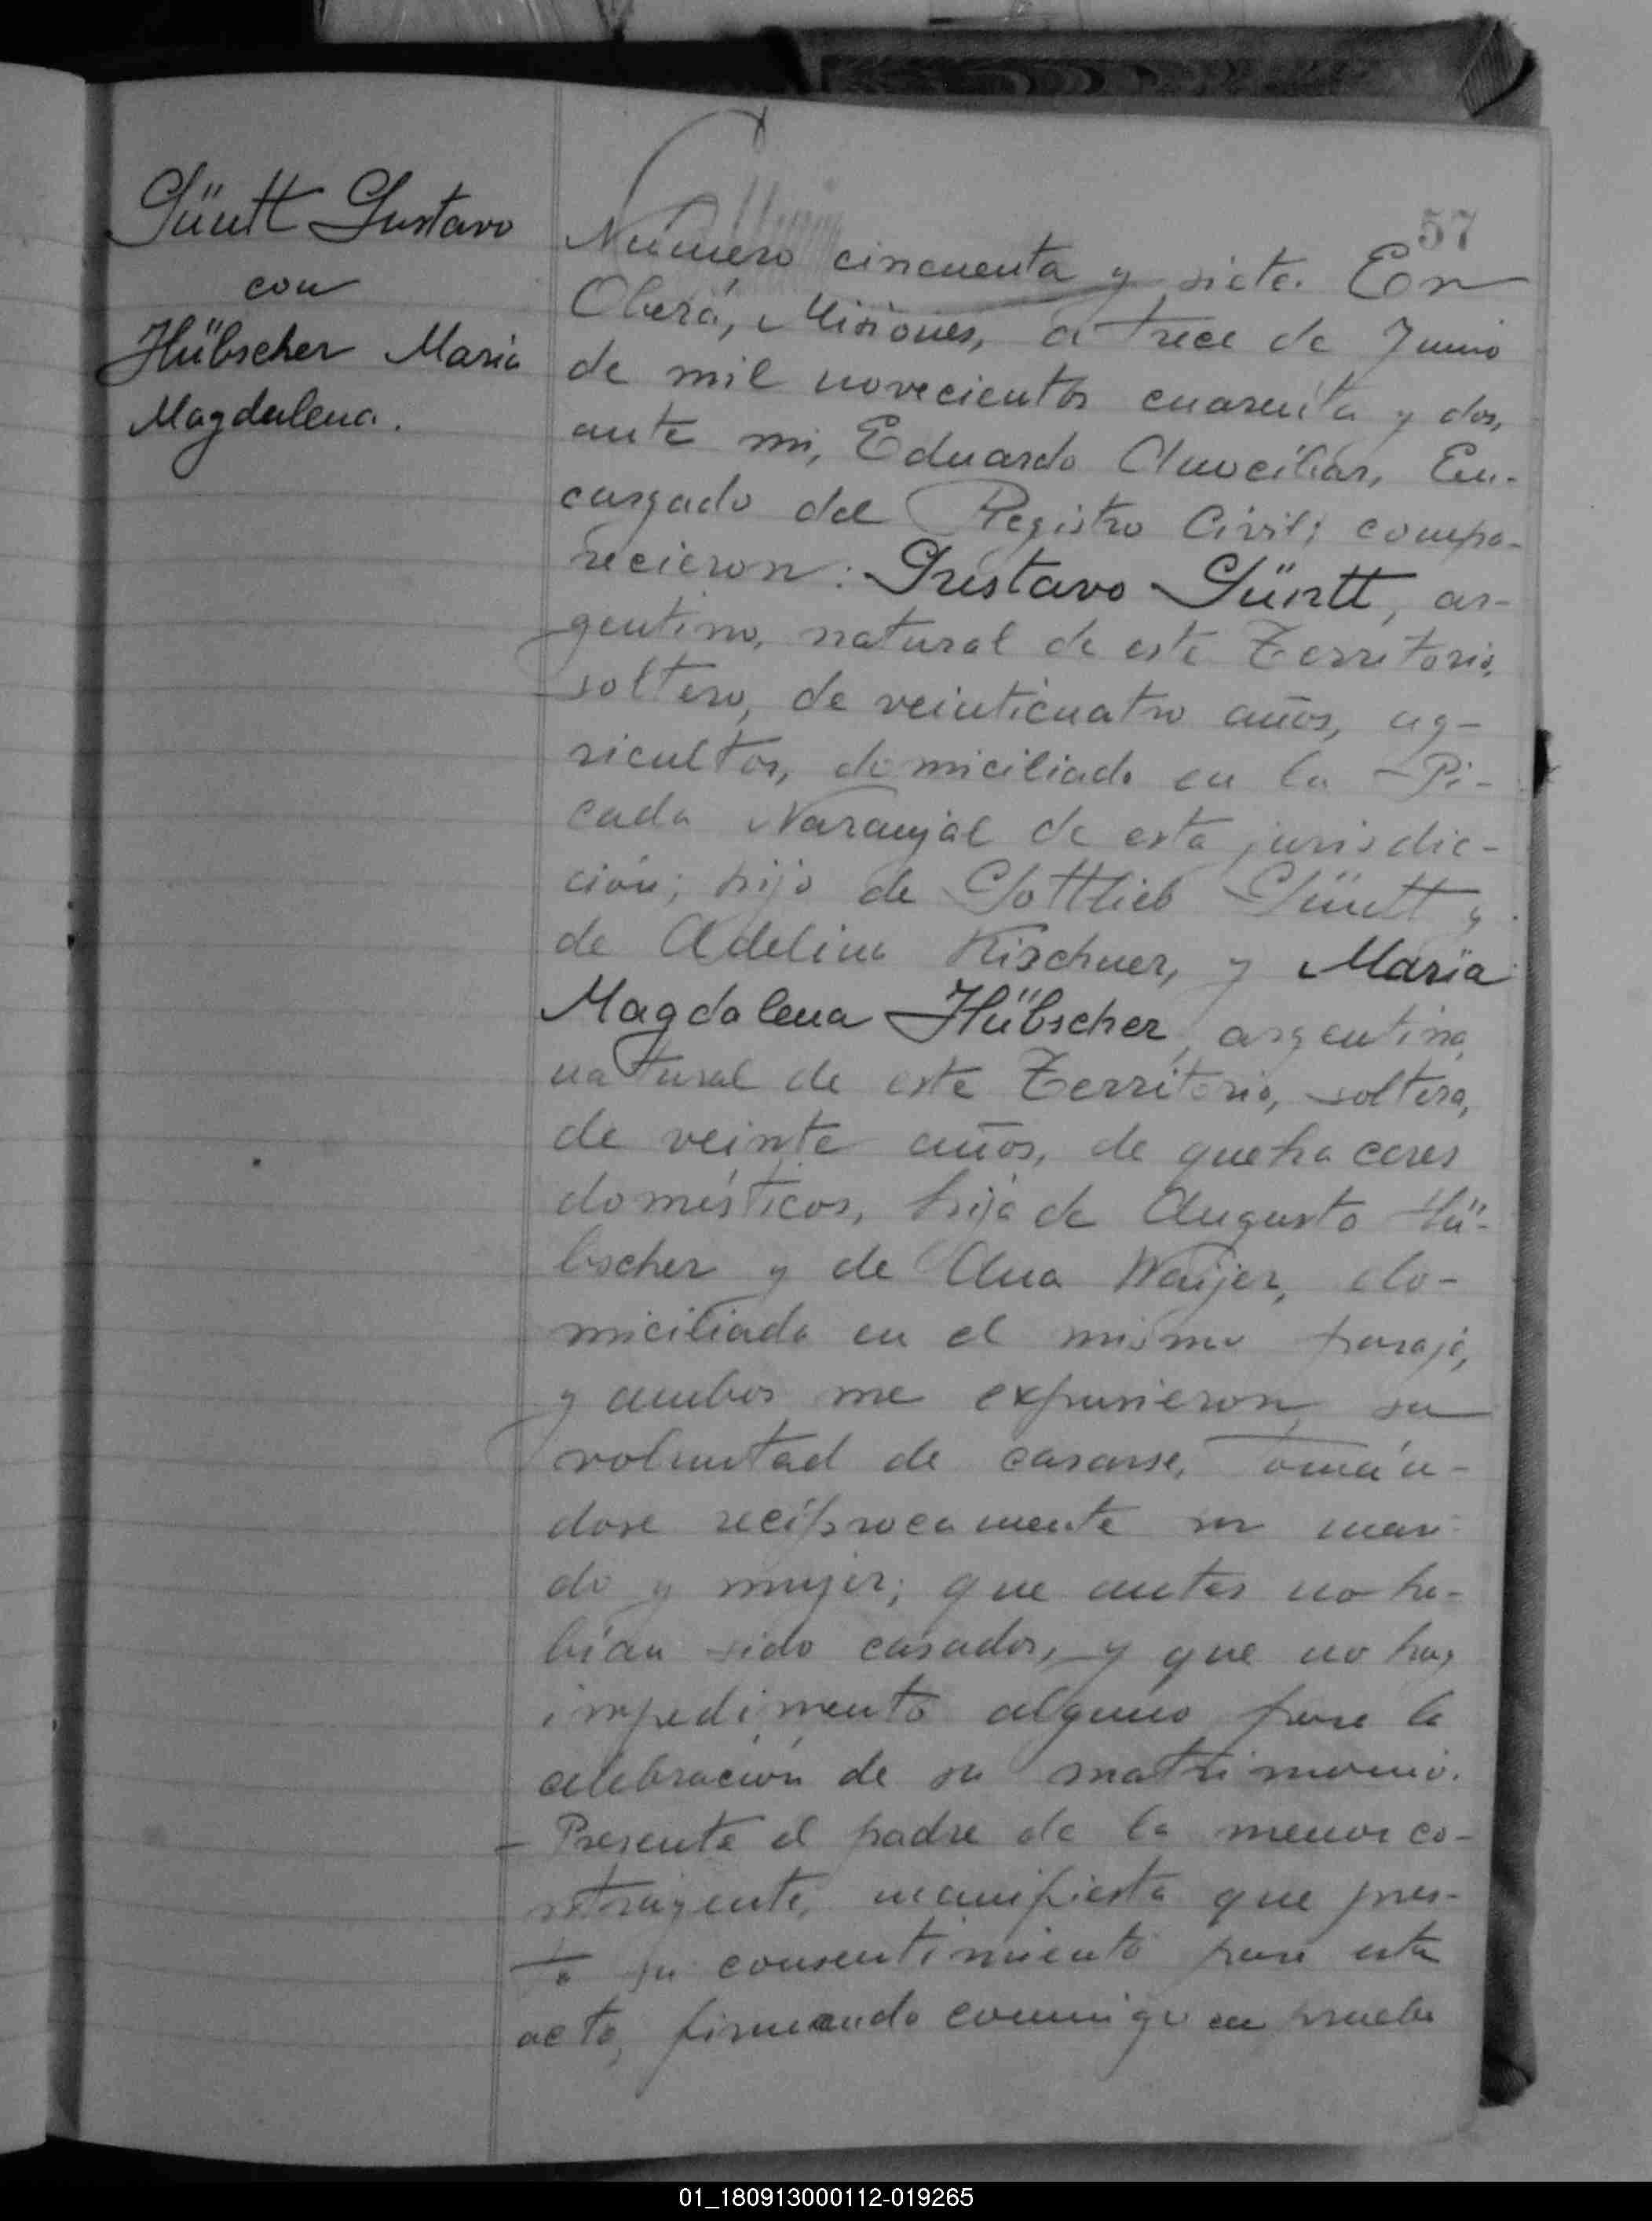 Güntt Gustavo
con
Hübscher Maria
Magdalena.
57
Número cincuenta y siete. En
Oberá, Misiones, a trece de Junio
de mil novecientos cuarenta y dos,
ante mi, Eduardo En-
cargado del Registro Civil; compa-
recieron: Gustavo Güntt, ar-
gentino, natural de este Territorio,
soltero, de veinticuatro años, ag-
ricultor, domiciliado en la Pi-
cada Naranjal de esta jurisdic-
ción; hijo de Gottlieb Güntt y
de Adelina Kischner, y María
Magdalena Hübscher, argentina,
natural de este Territorio, soltera,
de veinte años, de quehaceres
domésticos, hija de Augusto Hü-
bscher y de Ana do-
miciliada en el mismo paraje,
y ambos me expusieron su
voluntad de casarse, tomán-
dose recíprocamente por mari-
do y mujer; que antes no ha-
bían sido casados, y que no hay
impedimento alguno para la
celebración de su matrimonio.
- Presente el padre de la menor co-
ntrayente, manifiesta que pres-
ta su consentimiento para este
acto, firmando conmigo en prueba
01_180913000112-019265